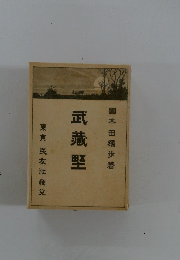 國木田獨歩著
武藏野
東京 民友社發兌